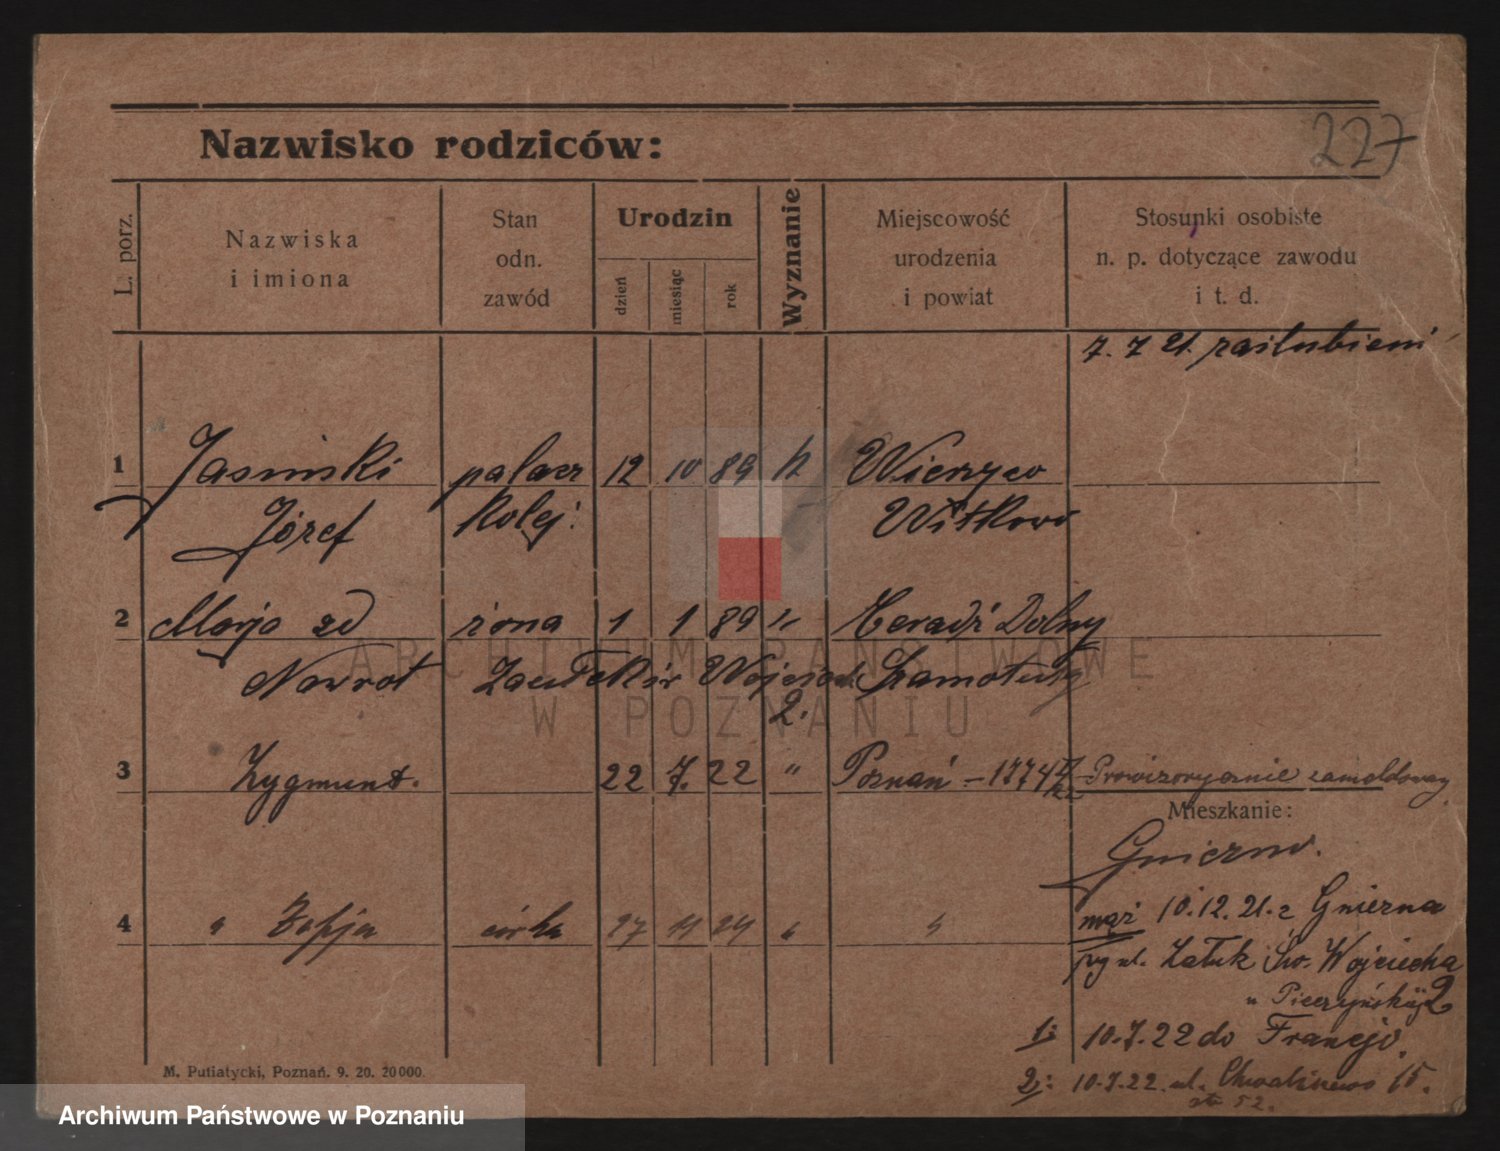 227
Nazwisko rodziców:
L. porz.
Nazwiska
i imiona
Stan
odn.
zawód
Urodzin
dzień
miesiąc
rok
Wyznanie
Miejscowość
urodzenia
i powiat
Stosunki osobiste
n. p. dotyczące zawodu
i t. d.
7. 7 21. zaślubieni
1 Jasiński palacz 12 10 89 k Wierzyce
Józef kolej. Witkowo
2 Marja zd żona 1 1 89 " Dolny
Nawrot Zaułek św Wojciech Szamotuły
2.
3 Zygmunt. 22 7. 22 " Poznań - 1774 Prowizorycznie zameldowany
Mieszkanie:
Gniezno.
4 " Zofja córka 27 11 24 " "
mąż 10.12.21. z Gniezna
ul. Zaułk Św. Wojciecha 2
u
1: 10.7.22 do Francji.
2: 10.7.22. ul. Chwaliszewo 15.
52.
M. Putiatycki, Poznań. 9. 20. 20000.
ARCHIWUM PAŃSTWOWE
W POZNANIU
Archiwum Państwowe w Poznaniu